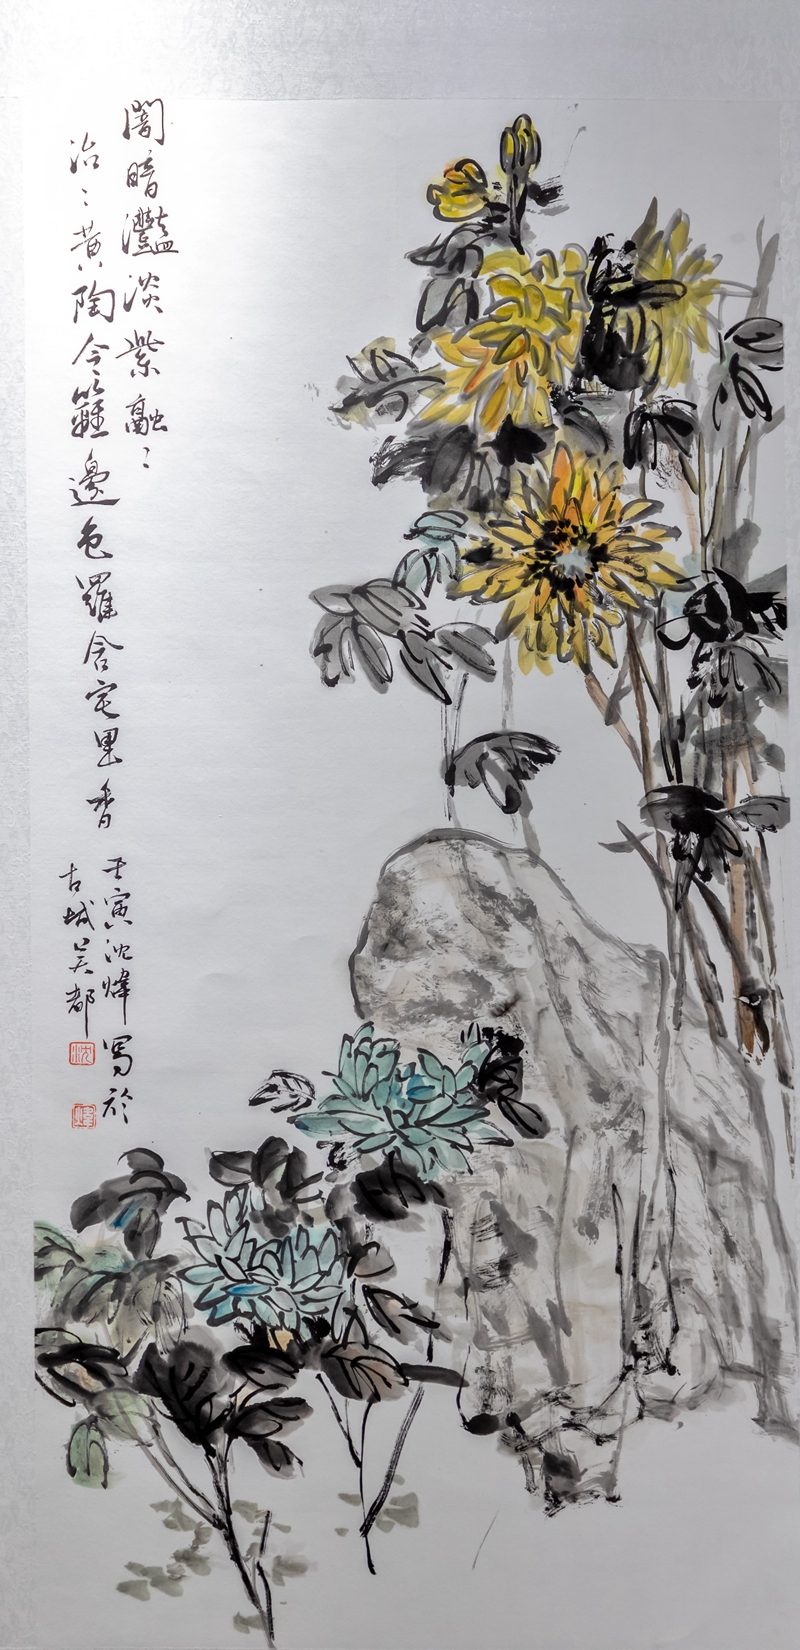 闇暗灩淡紫融〻
冶〻黄陶令籬邊色羅含宅里香
壬寅沈煒寫於
古城吴都
沈
煒